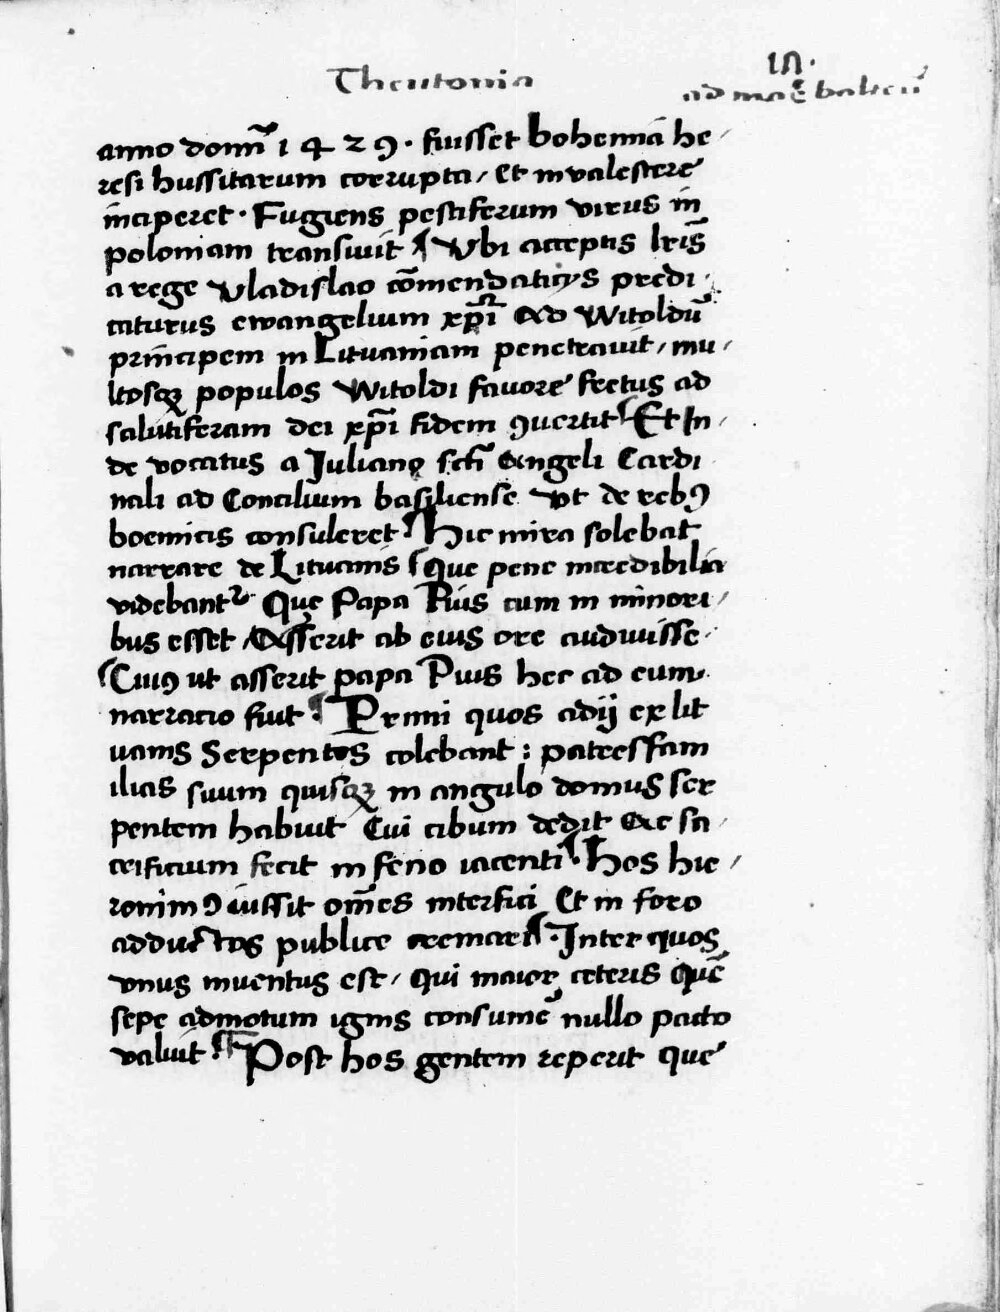 Theutonia
ın.
ad mare balteu
anno domı̄ 1429. fuisset bohemiā he/
resi hussitarum corrupta/ Et inualescere
inciperet. Fugiens pestiferum virus in
poloniam transiuit ¶ Vbi acceptis lr̄is
a rege Vladislao cōmendaticÿs predi/
caturus ewangelium xp̄i Ad Witoldū
principem in Lituaniam penetrauit/ mu/
ltosqꝫ populos Witoldi fauore fretus ad
salutiferam dei xp̄i fidem ꝯuertit Et In/
de vocatus a Juliano sct̄i Angeli Cardi
nali ad Concilium basiliense Vt de rebꝰ
boemicis consuleret Hic mira solebat
narrare de Lituanis Que pene incredibilia
videbantᷣ Quę Papa Pius cum in minori/
bus esset/ Asserit ab eius ore audiuisse.
Cuiꝰ ut asserit papa Pius hec ad eum
narracio fiut. Primi quos adij ex lit
uanis Serpentes colebant: patresfam
ilias suum quisqꝫ in angulo domus ser
pentem habuit Cui cibum dedit Ac sa/
crificium fecit in feno iacenti. Hos hie/
ronimꝰ iussit om̄es interfici Et in foro
adductos publice cremari. Inter quos
vnus inuentus est/ Qui maior ceteris Quē
sepe admotum ignis consumē nullo pacto
valuit. Post hos gentem reperit que